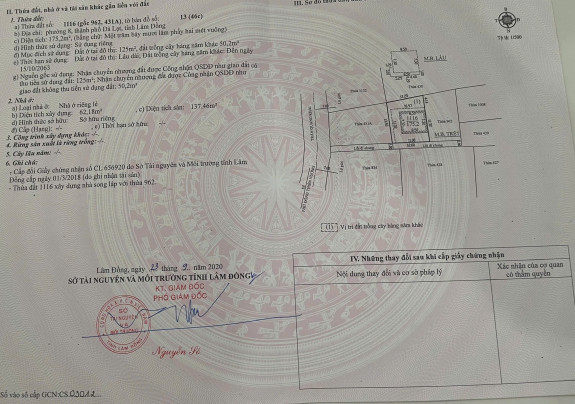 II. Thửa đất, nhà ở và tài sản khác gắn liền với đất
1. Thửa đất:
a) Thửa đất số: 1116 (gốc 962, 431A), tờ bản đồ số: 13 (46c)
b) Địa chỉ: phường 8, thành phố Đà Lạt, tỉnh Lâm Đồng
c) Diện tích: 175,2m², (bằng chữ: Một trăm bảy mươi lăm phẩy hai mét vuông)
d) Hình thức sử dụng: Sử dụng riêng
đ) Mục đích sử dụng: Đất ở tại đô thị: 125m², đất trồng cây hàng năm khác 50,2m²
e) Thời hạn sử dụng: Đất ở tại đô thị: Lâu dài; Đất trồng cây hàng năm khác: Đến ngày
15/10/2063
g) Nguồn gốc sử dụng: Nhận chuyển nhượng đất được Công nhận QSDĐ như giao đất có
thu tiền sử dụng đất: 125m²; Nhận chuyển nhượng đất được Công nhận QSDĐ như
giao đất không thu tiền sử dụng đất: 50,2m²
2. Nhà ở:
a) Loại nhà ở: Nhà ở riêng lẻ
b) Diện tích xây dựng: 62,18m², c) Diện tích sàn: 137,46m²
d) Hình thức sở hữu: Sở hữu riêng
đ) Cấp (Hạng): -/- , e) Thời hạn sở hữu: -/-
3. Công trình xây dựng khác: -/-
4. Rừng sản xuất là rừng trồng: -/-
5. Cây lâu năm: -/-
6. Ghi chú:
- Cấp đổi Giấy chứng nhận số CL 656920 do Sở Tài nguyên và Môi trường tỉnh Lâm
Đồng cấp ngày 01/3/2018 (do ghi nhận tài sản)
- Thửa đất 1116 xây dựng nhà song lập với thửa 962.
III. Sơ đồ
Tỷ lệ 1/500
M.B. LẦU
(1)
1116
175.2
M.B. TRỆT
Thửa 431A
Lối đi chung
(1) Vị trí đất trồng cây hàng năm khác
Lâm Đồng, ngày 23 tháng 9 năm 2020
SỞ TÀI NGUYÊN VÀ MÔI TRƯỜNG TỈNH LÂM ĐỒNG
KT. GIÁM ĐỐC
PHÓ GIÁM ĐỐC
SỞ
TÀI NGUYÊN
VÀ
MÔI TRƯỜNG
TỈNH LÂM ĐỒNG
IV. Những thay đổi sau khi cấp giấy chứng nhận
Nội dung thay đổi và cơ sở pháp lý
Xác nhận của cơ quan
có thẩm quyền
Số vào sổ cấp GCN:CS